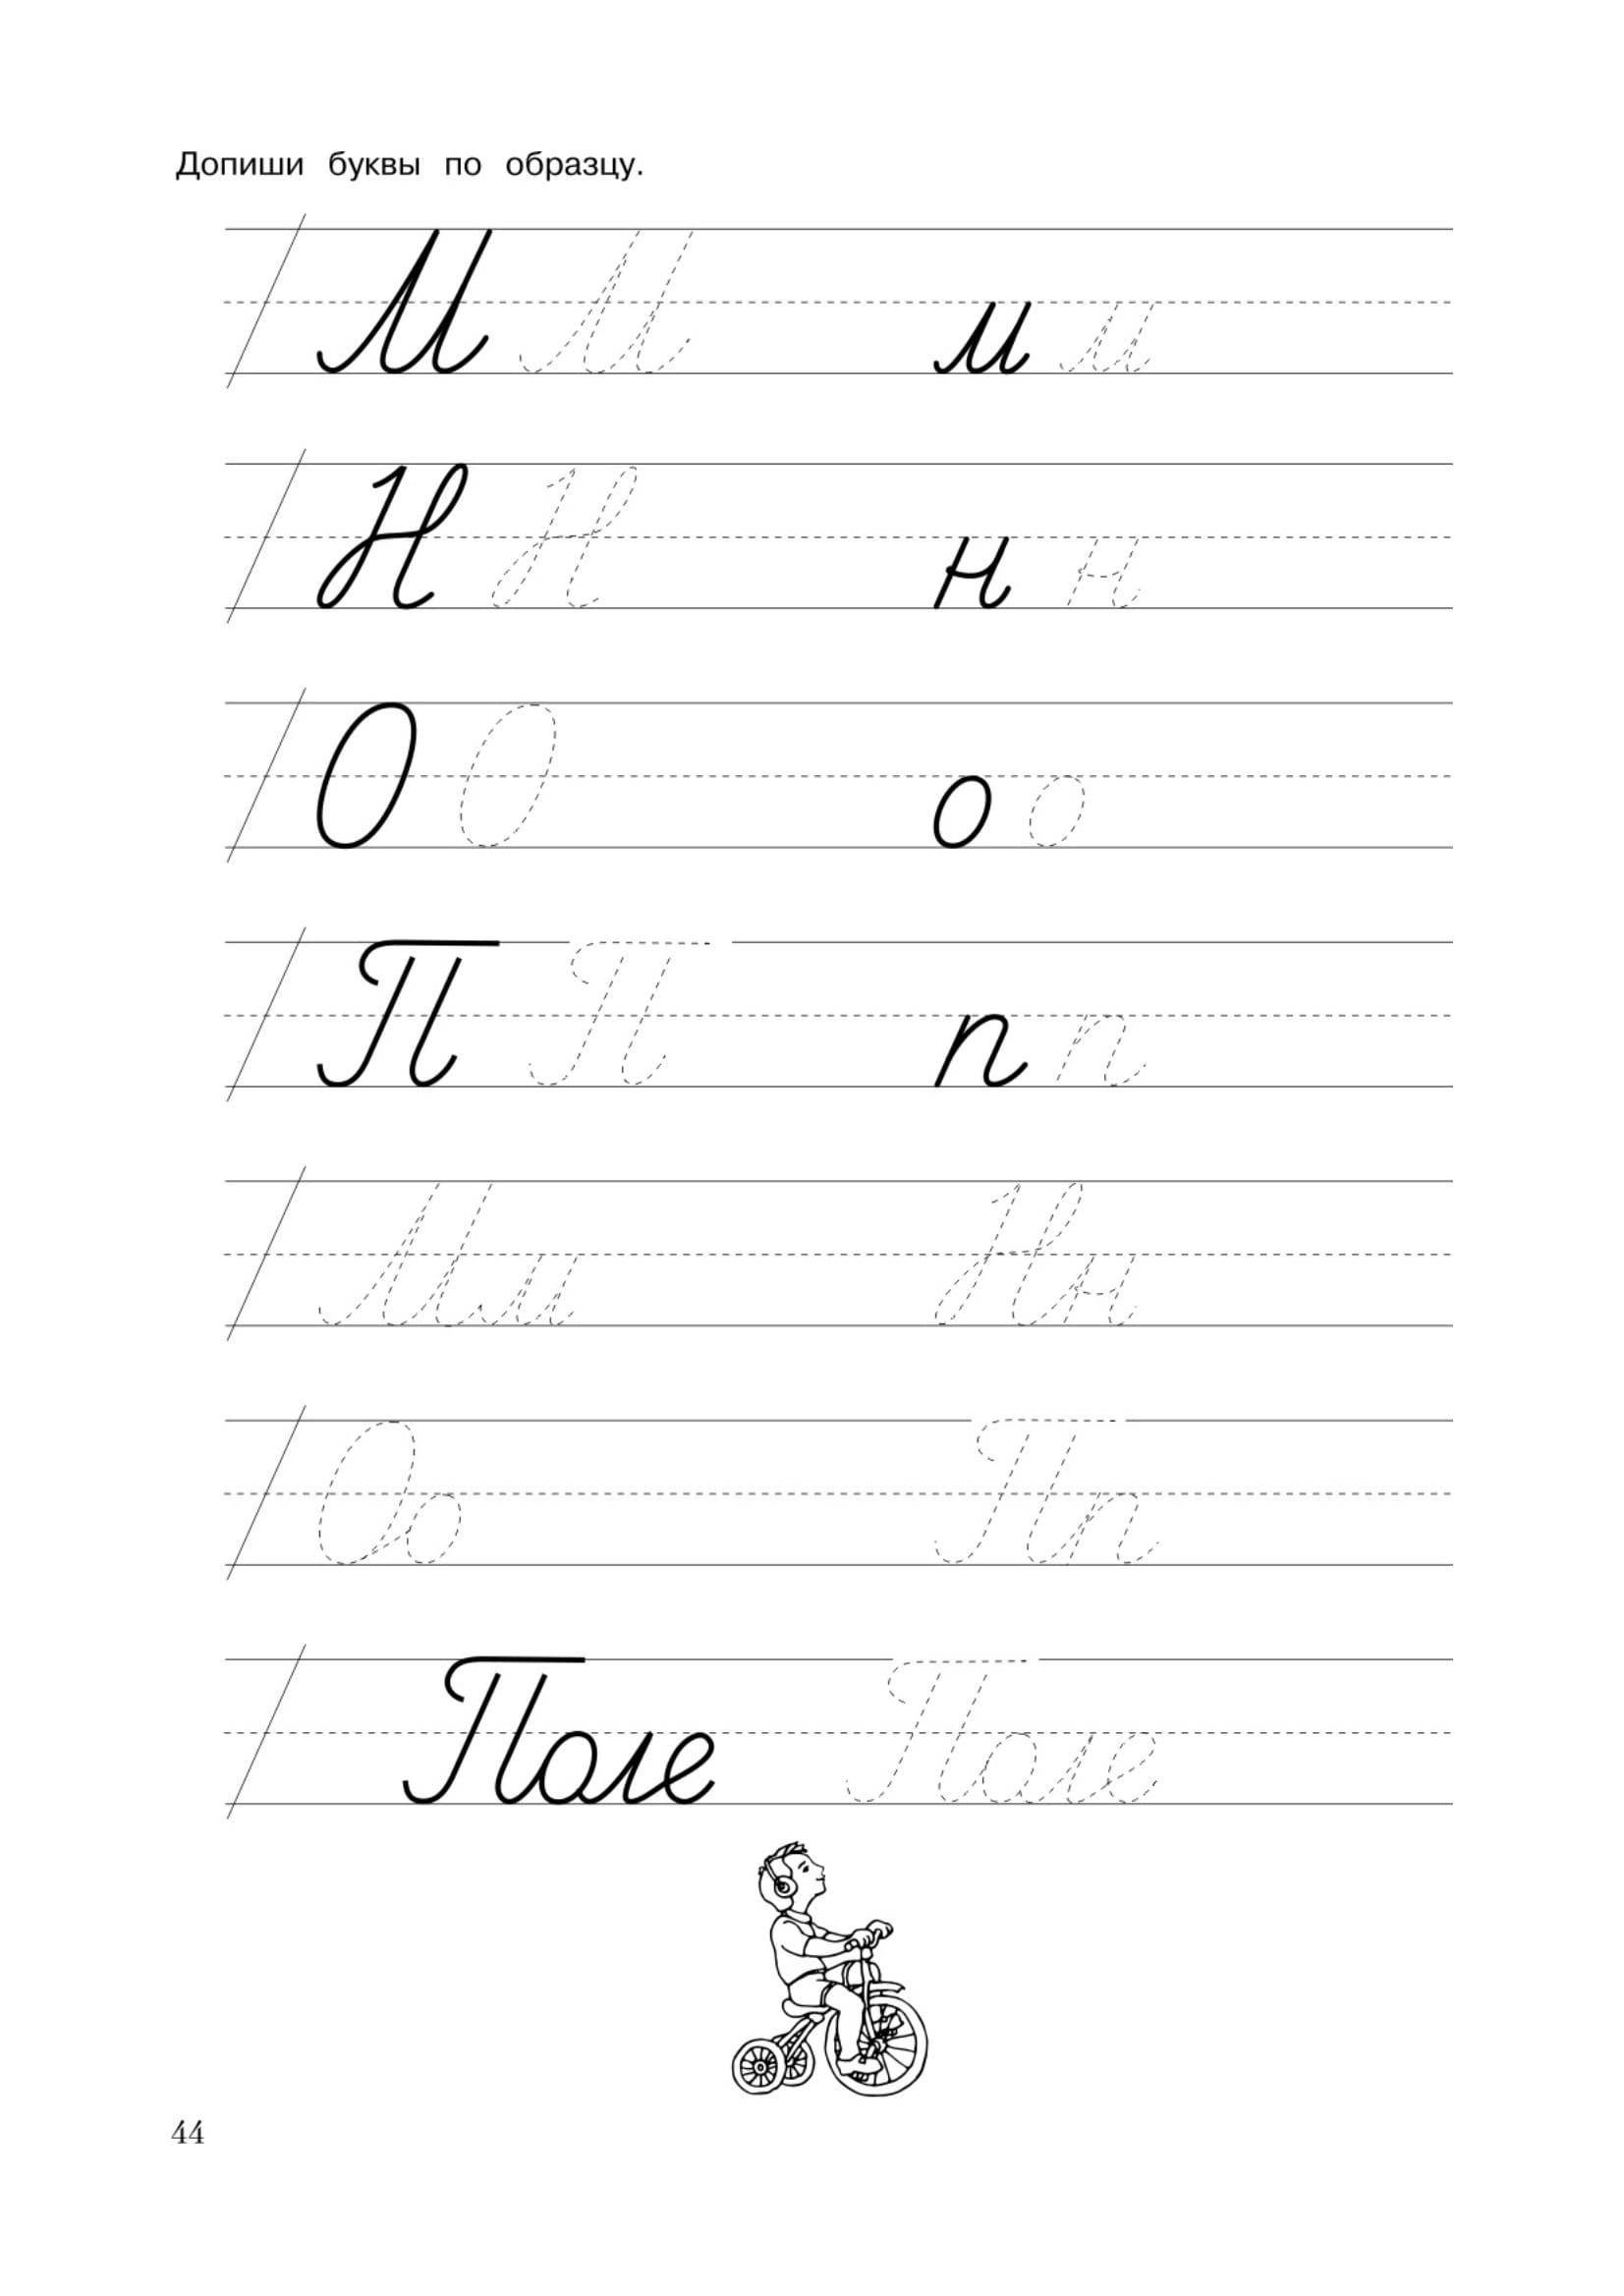 Допиши буквы по образцу.
М М м м
Н Н н н
О О о о
П П п п
Мм Нн
Оо Пп
Поле Поле
44